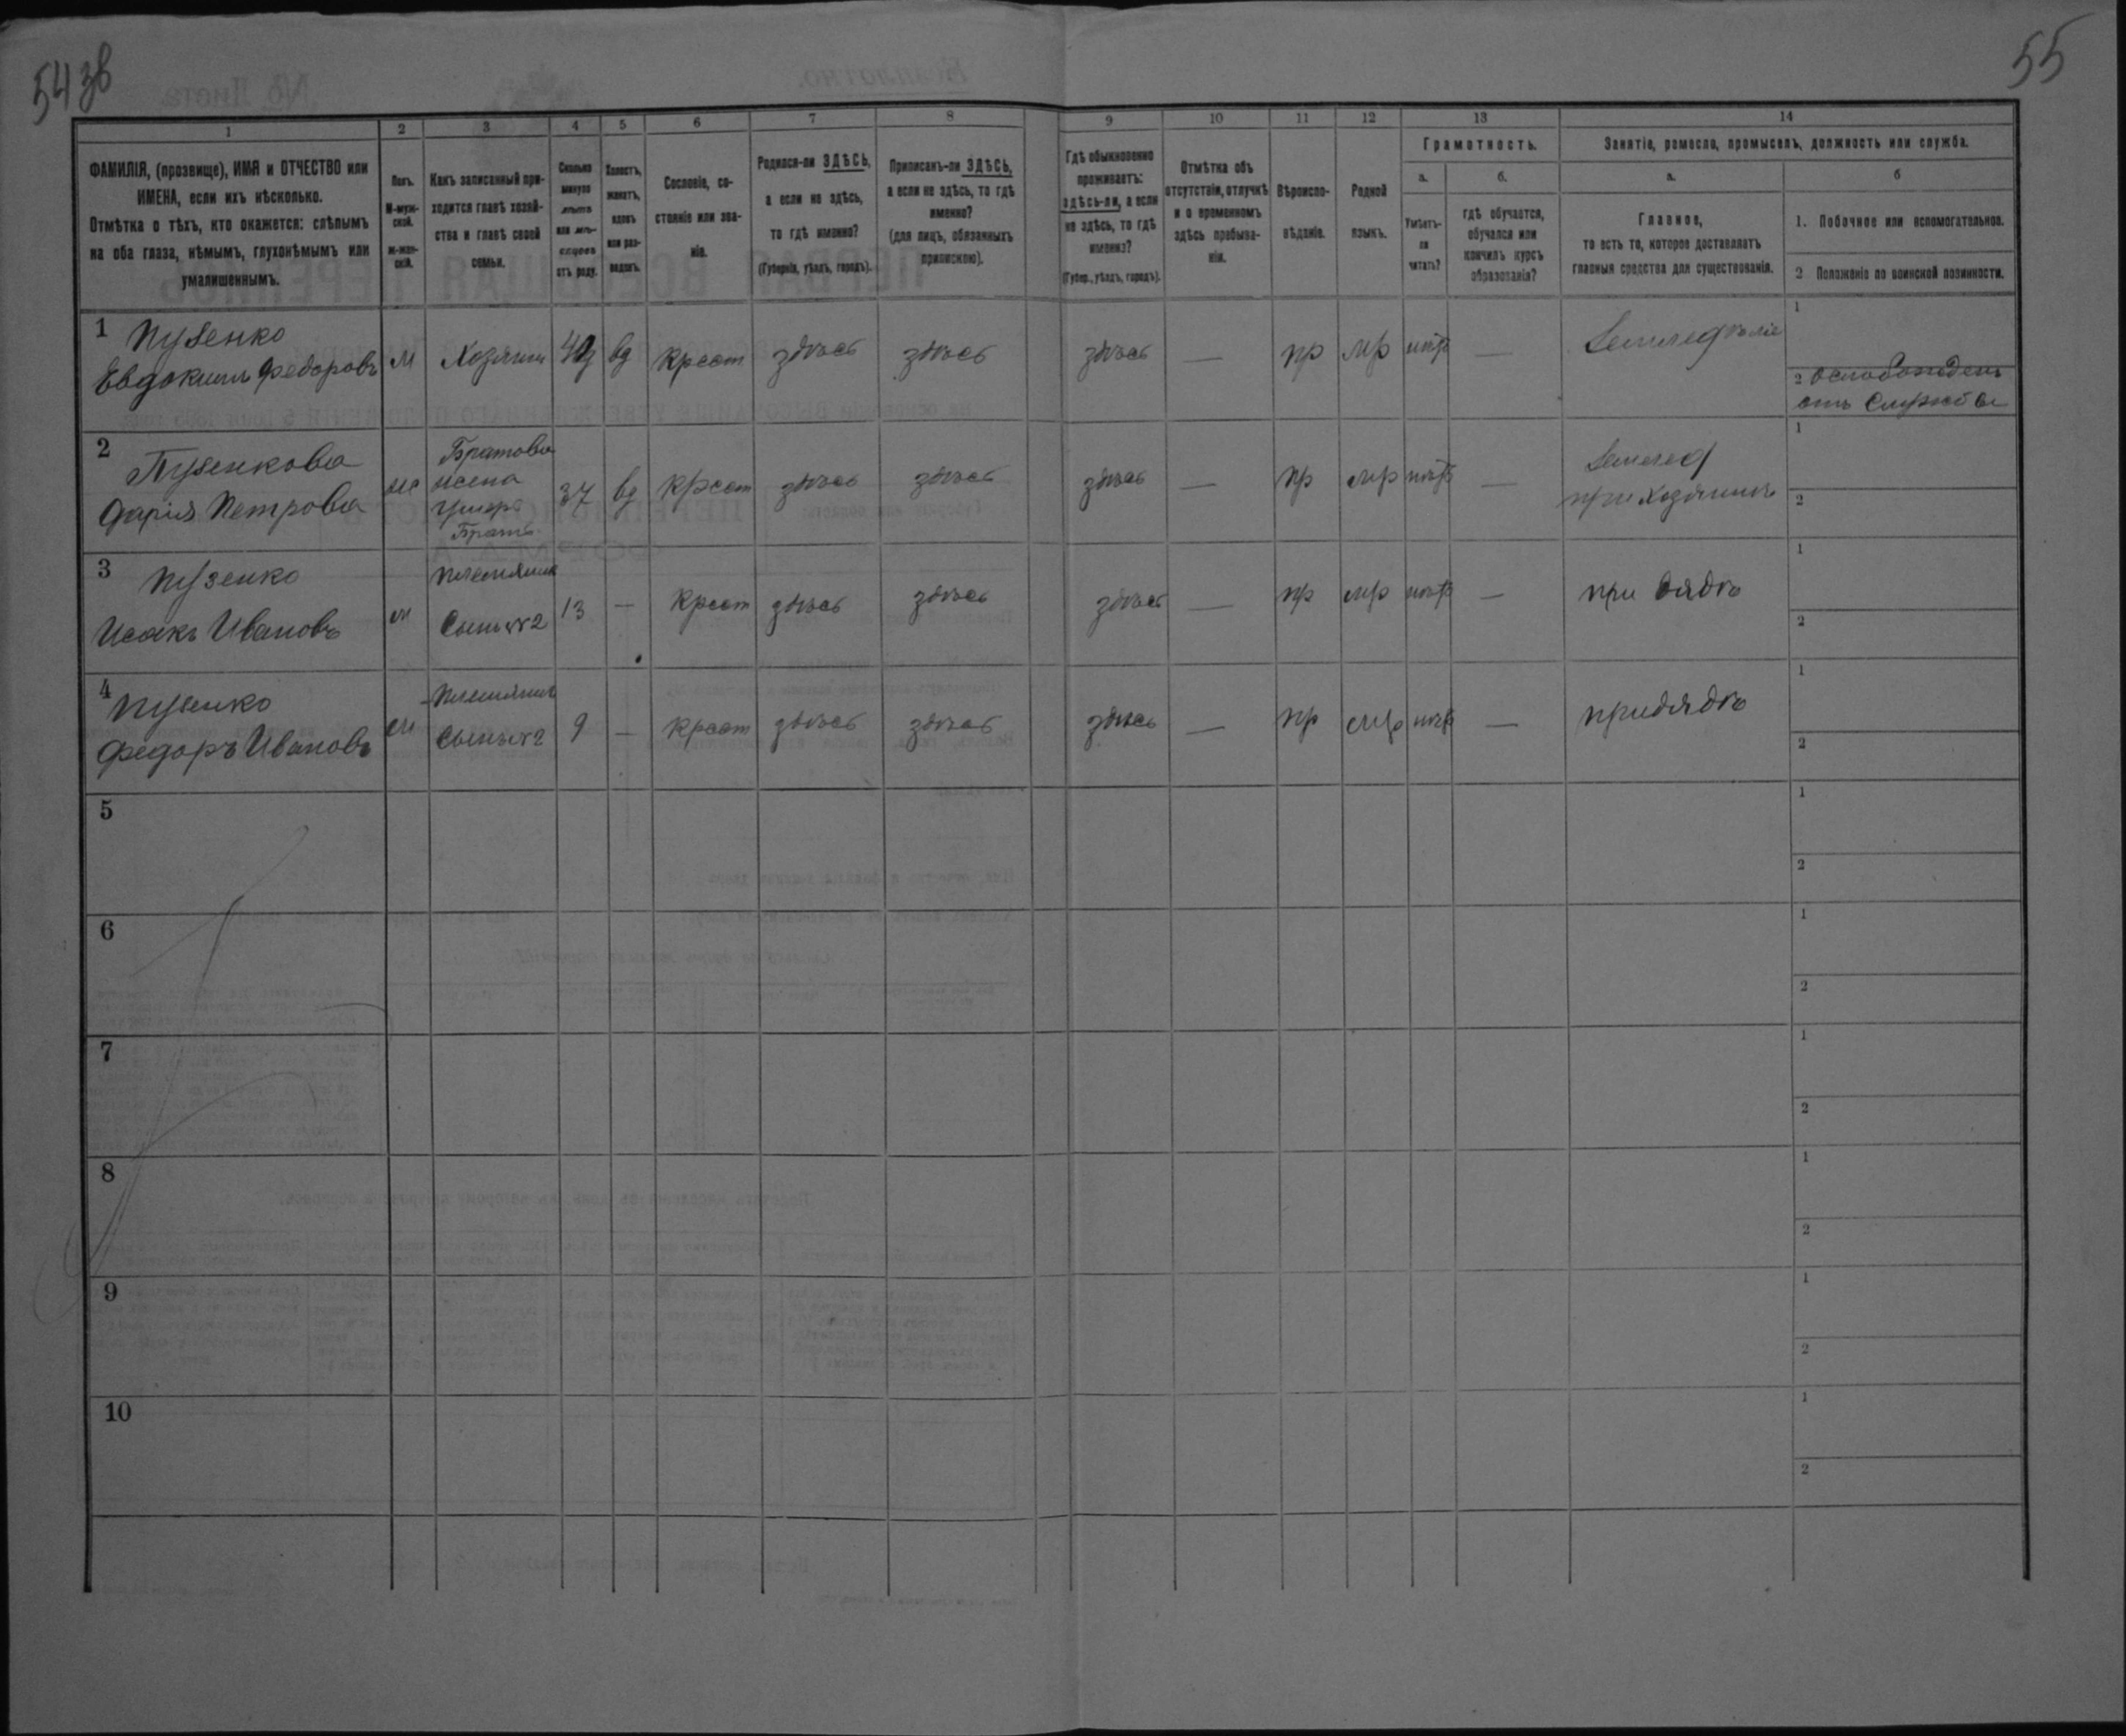 54 зв
55
1
2
3
4
5
6
7
8
9
10
11
12
13
14
ФАМИЛІЯ, (прозвище), ИМЯ и ОТЧЕСТВО или
ИМЕНА, если ихъ нѣсколько.
Отмѣтка о тѣхъ, кто окажется: слѣпымъ
на оба глаза, нѣмымъ, глухонѣмымъ или
умалишеннымъ.
Полъ.
М-муж-
ской.
ж-жен-
скій.
Какъ записанный при-
ходится главѣ хозяй-
ства и главѣ своей
семьи.
Сколько
минуло
лѣтъ
или мѣ-
сяцевъ
отъ роду.
Холостъ,
женатъ,
вдовъ
или раз-
веденъ.
Сословіе, со-
стояніе или зва-
ніе.
Родился-ли ЗДѢСЬ,
а если не здѣсь,
то гдѣ именно?
(Губернія, уѣздъ, городъ).
Приписанъ-ли ЗДѢСЬ,
а если не здѣсь, то гдѣ
именно?
(для лицъ, обязанныхъ
припискою).
Гдѣ обыкновенно
проживаетъ:
здѣсь-ли, а если
не здѣсь, то гдѣ
именно?
(Губер., уѣздъ, городъ).
Отмѣтка объ
отсутствіи, отлучкѣ
и о временномъ
здѣсь пребыва-
ніи.
Вѣроиспо-
вѣданіе.
Родной
языкъ.
Грамотность.
а.
б.
Умѣетъ-
ли
читать?
гдѣ обучается,
обучался или
кончилъ курсъ
образованія?
Занятіе, ремесло, промыселъ, должность или служба.
а.
б
Главное,
то есть то, которое доставляетъ
главныя средства для существованія.
1. Побочное или вспомогательное.
2 Положеніе по воинской повинности.
1 Пузенко
Евдокимъ Федоровъ
м
Хозяинъ
вд
Крест
здѣсь
здѣсь
здѣсь
—
пр
мр
нѣтъ
—
Земледѣліе
1
2 Освобожденъ
отъ службы
2
Пузенкова
Дарія Петрова
ж
Братова
жена
умерш
Братъ
37
вд
Крест
здѣсь
здѣсь
здѣсь
—
пр
мр
нѣтъ
—
Землед
при хозяинѣ
1
2
3 Пузенко
Исакъ Ивановъ
м
Племянник
Сынъ №2
13
—
Крест
здѣсь
здѣсь
здѣсь
—
пр
мр
нѣтъ
—
при дядѣ
1
2
4 Пузенко
Федоръ Ивановъ
м
Племянникъ
Сынъ №2
9
—
Крест
здѣсь
здѣсь
здѣсь
—
пр
мр
нѣтъ
—
при дядѣ
1
2
5
1
2
6
1
2
7
1
2
8
1
2
9
1
2
10
1
2